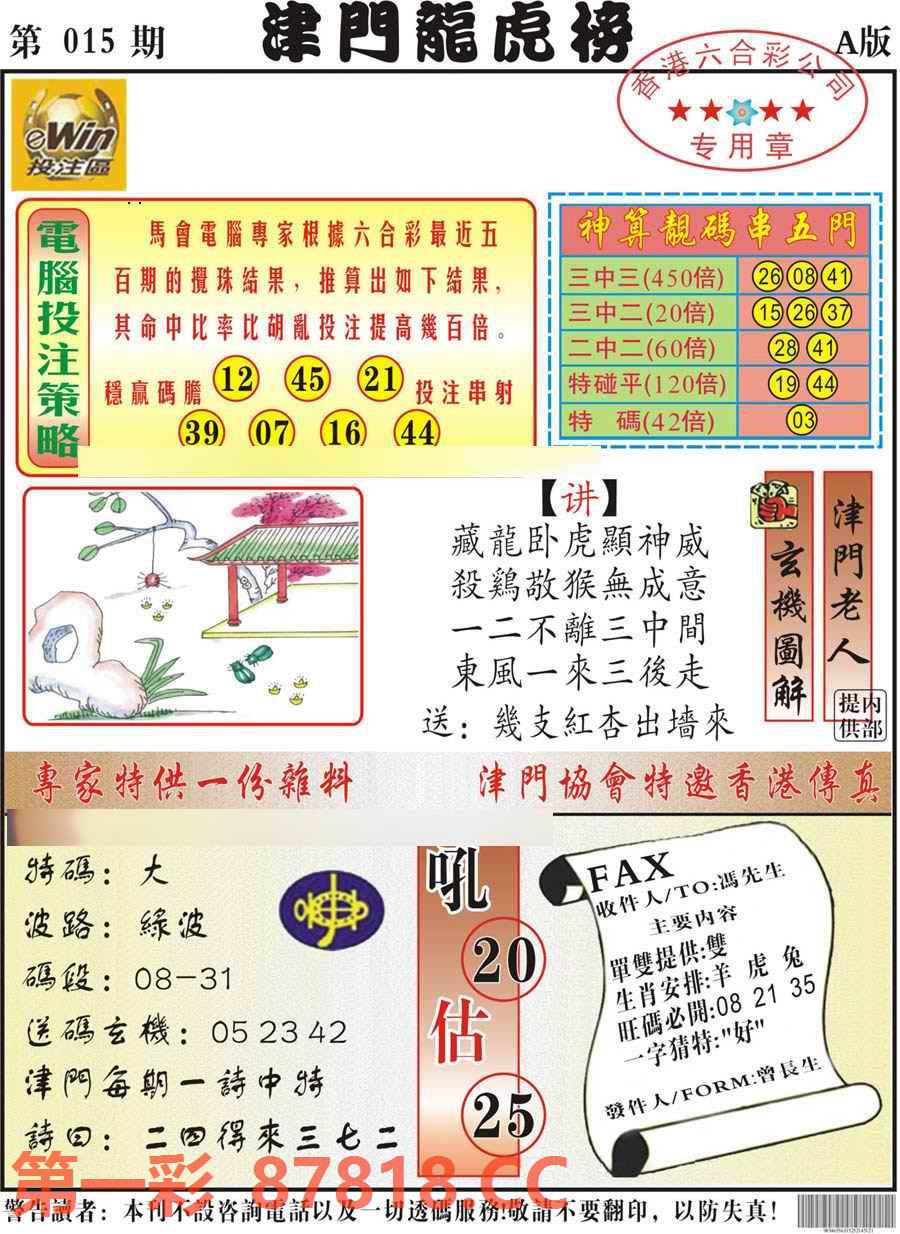 第 015 期
津門龍虎榜
A版
香港六合彩公司
★★★★
专用章
eWin
投注區
電腦投注策略
馬會電腦專家根據六合彩最近五
百期的攪珠結果，推算出如下結果，
其命中比率比胡亂投注提高幾百倍。
穩贏碼膽 12 45 21 投注串射
39 07 16 44
神算靚碼串五門
三中三(450倍) 26 08 41
三中二(20倍) 15 26 37
二中二(60倍) 28 41
特碰平(120倍) 19 44
特 碼(42倍) 03
【讲】
藏龍卧虎顯神威
殺鷄敬猴無成意
一二不離三中間
東風一來三後走
送：幾支紅杏出墻來
玄機圖解
津門老人
内部提供
專家特供一份雜料
津門協會特邀香港傳真
特碼：大
波路：綠波
碼段：08－31
送碼玄機：05 23 42
津門每期一詩中特
詩曰：二四得來三七二
吼
20
估
25
FAX
收件人/TO:馮先生
主要内容
單雙提供:雙
生肖安排:羊 虎 兔
旺碼必開:08 21 35
一字猜特:"好"
發件人/FORM:曾長生
第一彩 87818.CC
警告讀者：本刊不設咨詢電話以及一切透碼服務!敬請不要翻印，以防失真!